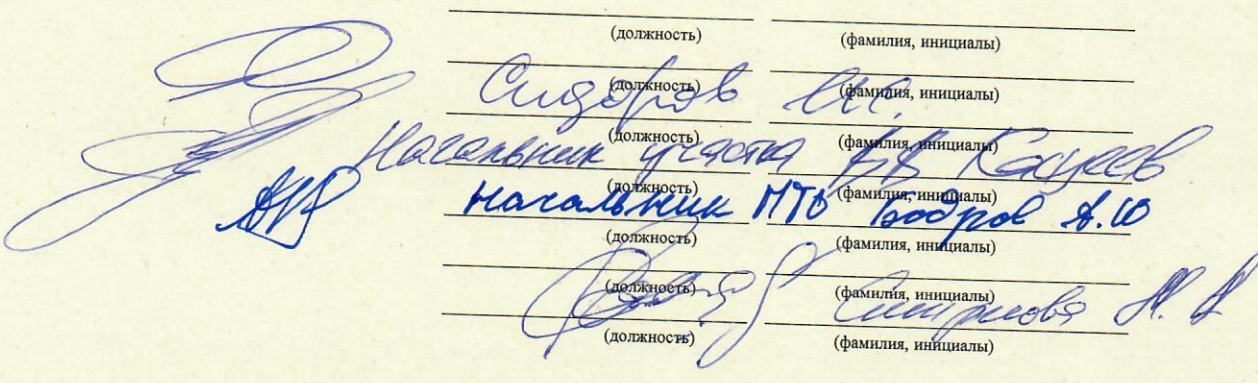 (должность) (фамилия, инициалы)
Сидоров
(должность) (фамилия, инициалы)
Начальник участка
(должность) (фамилия, инициалы)
начальник МТО Бодров А.Ю
(должность) (фамилия, инициалы)
(должность) (фамилия, инициалы)
Смирнова Н. А
(должность) (фамилия, инициалы)
(должность) (фамилия, инициалы)